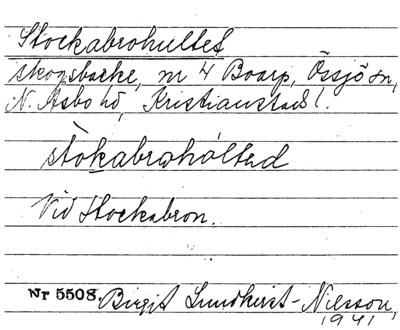 Stockabrohultet
skogsbacke, nr 4 Boarp, Össjö sn,
N. Åsbo hd, Kristianstads l.
Vid Stockabron.
Nr 5508. Birgit Lundkvist-Nilsson,
1941